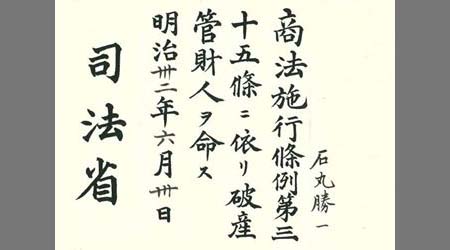 石丸勝一
商法施行條例第三
十五條ニ依リ破産
管財人ヲ命ス
明治卅二年六月卅日
司法省